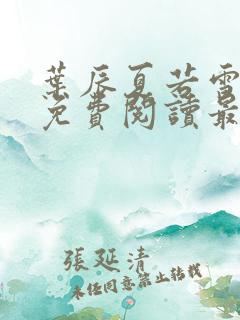 葉辰夏若雪
免費閱讀最
張延清
未经同意禁止转载